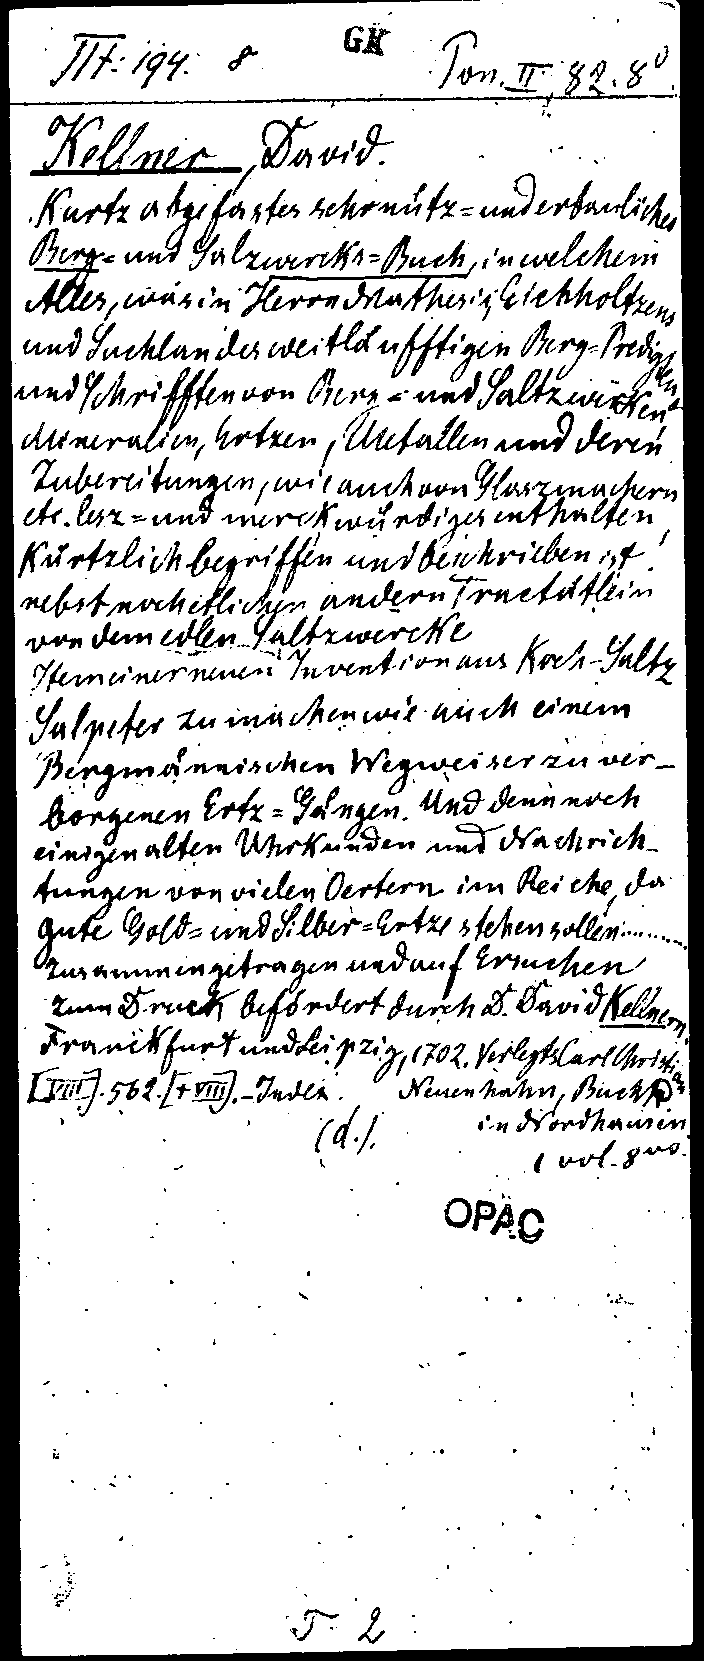 IIt: 194. 8 GK Pon. II, 82. 8°.
Kellner, David.
Kurtz abgefastes sehr nütz= und erbauliches
Berg= und Salzwercks=Buch, in welchem
Alles, was in Herrn Mathesii, Eichholtzens
und Suchlandes weitläufftigen Berg=Predigten
und Schrifften von Berg= und Saltzwercken
Mineralien, Ertzen, Metallen und deren
Zubereitungen, wie auch von Glaszmachern
etc. lesz= und merckwürdiges enthalten,
Kürtzlich begriffen und beschrieben ist!
nebst noch etlichen andern Tractätlein
von dem edlen Saltzwercke
Item einer neuen Invention aus Koch-Saltz
Salpeter zu machen wie auch einem
Bergmännischen Wegweiser zu ver-
borgenen Ertz=Gängen. Und denn noch
einigen alten Uhrkunden und Nachrich-
tungen von vielen Oertern im Reiche, da
gute Gold= und Silber=Ertze stehen sollen.........
zusammengetragen und auf Ersuchen
zum Druck befördert durch D. David Kellnern.
Franckfurt und Leipzig, 1702. Verlegts Carl Christian
[VIII]. 562. [+VIII]. - Index. Neuenhahn, Buchh
in Nordhausen
(d.). 1 vol. 8vo.
OPAC
T 2